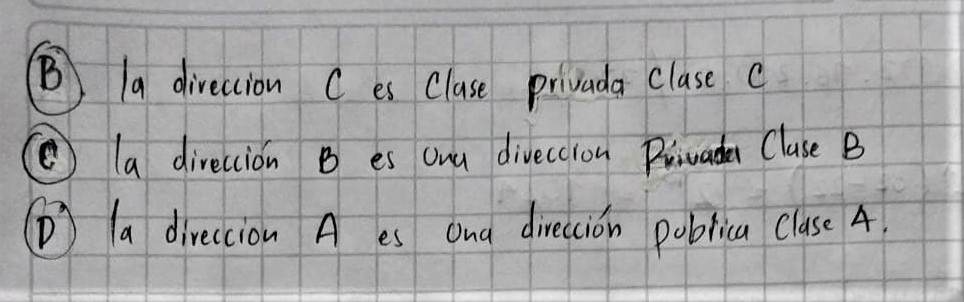 B) la direccion C es Clase privada Clase C
C) la dirección B es una direccion Privada Clase B
D) la direccion A es una dirección publica Clase A.